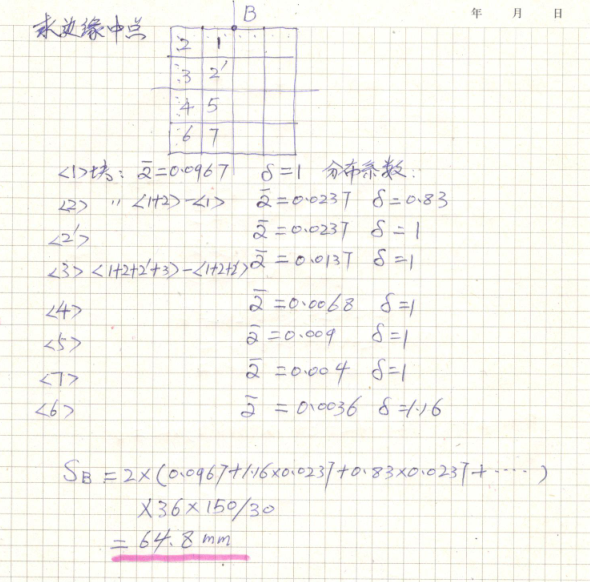 年 月 日
求边缘中点
B
2 1
3 2'
4 5
6 7
<1>块: ᾱ=0.0967 δ=1 分布系数:
<2> 〃 <1+2>-<1> ᾱ=0.0237 δ=0.83
<2'> ᾱ=0.0237 δ=1
<3> <1+2+2'+3>-<1+2+2'> ᾱ=0.0137 δ=1
<4> ᾱ=0.0068 δ=1
<5> ᾱ=0.009 δ=1
<7> ᾱ=0.004 δ=1
<6> ᾱ=0.0036 δ=1.16
SB=2×(0.0967+1.16×0.0237+0.83×0.0237+·····)
×36×150/30
=64.8mm